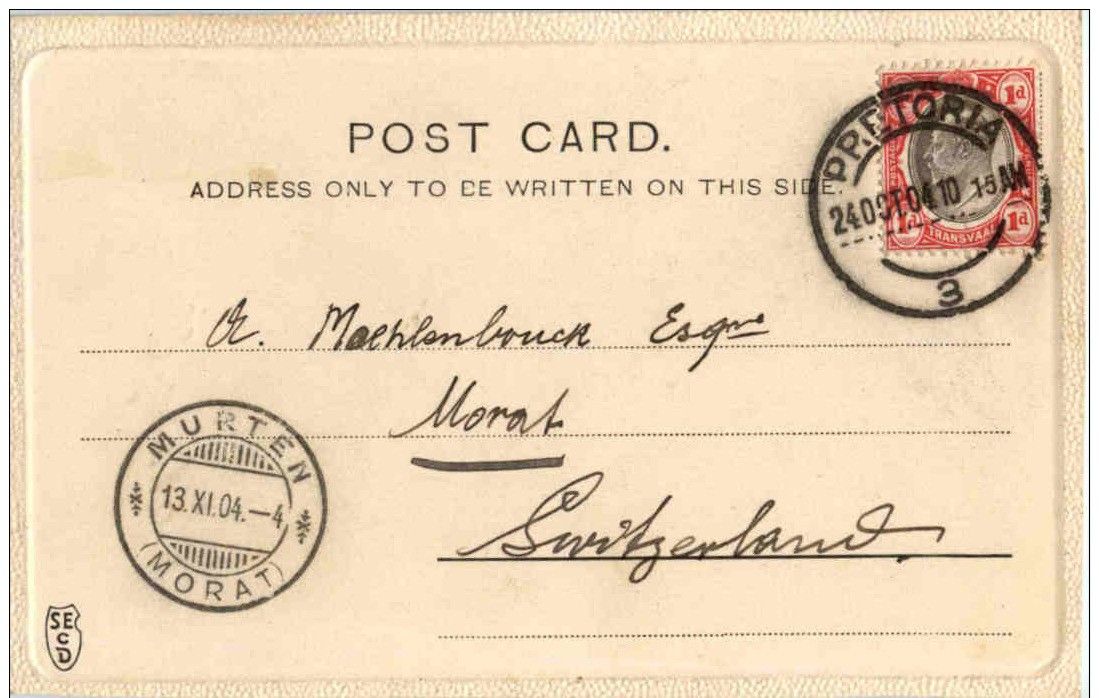 POST CARD.
ADDRESS ONLY TO BE WRITTEN ON THIS SIDE.
PRETORIA
24 OCT 04 10 15 AM
3
1d
POSTAGE
1d 1d
TRANSVAAL
A. Moehlenbouck Esqre
Morat
Switzerland
MURTEN
13.XI.04.–4
(MORAT)
SE
C
D